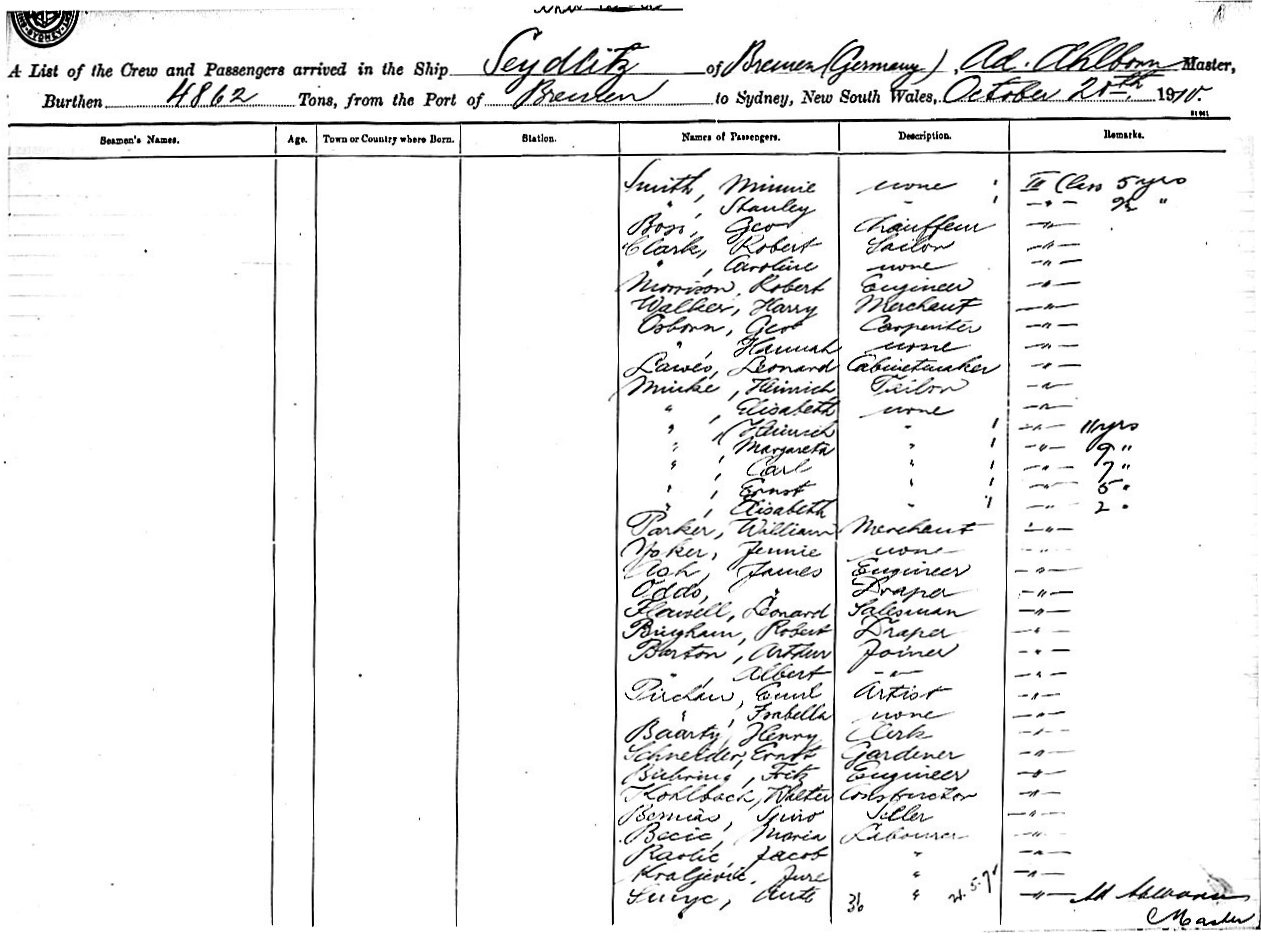 A List of the Crew and Passengers arrived in the Ship Seydlitz of Bremen (Germany), Ad. Ahlborn Master,
Burthen 4862 Tons, from the Port of Bremen to Sydney, New South Wales, October 20th 1910.
Seamen's Names. Age. Town or Country where Born. Station. Names of Passengers. Description. Remarks.
Smith, Minnie none ' III Class 5 yrs
" , Stanley - ' -"- "
Geo Chauffeur -"-
Clark, Robert Sailor -"-
" , Caroline none -"-
Morrison, Robert Engineer -"-
Walkier, Harry Merchant -"-
Osborn, Geo Carpenter -"-
" , Hannah none -"-
Lawes, Leonard Cabinetmaker -"-
Minke, Heinrich Tailor -"-
" , Elisabeth none -"-
" , Heinrich - ' -"- 11 yrs
" , Margareta " ' -"- 9 "
" , Carl " ' -"- 7 "
" , Ernst " ' -"- 5 "
" , Elisabeth " ' -"- 2 "
Parker, William Merchant -"-
Yoker, Jennie none -"-
Ash, James Engineer -"-
Odds, " Draper -"-
Flawell, Leonard Salesman -"-
Bingham, Robert Draper -"-
Barton, Arthur Joiner -"-
" , Albert -"- -"-
Pirchan, Emil Artist -"-
" , Isabella none -"-
Baarty, Henry Clerk -"-
Schneider, Ernst Gardener -"-
Bühring, Fritz Engineer -"-
Kohlbach, Walter Constructor -"-
Spiro -"-
Becic, Maria Labourer -"-
Raolic, Jacob " -"-
Kraljevic, Jure " -"-
Ante " -"- Ad Ahlborn
Master